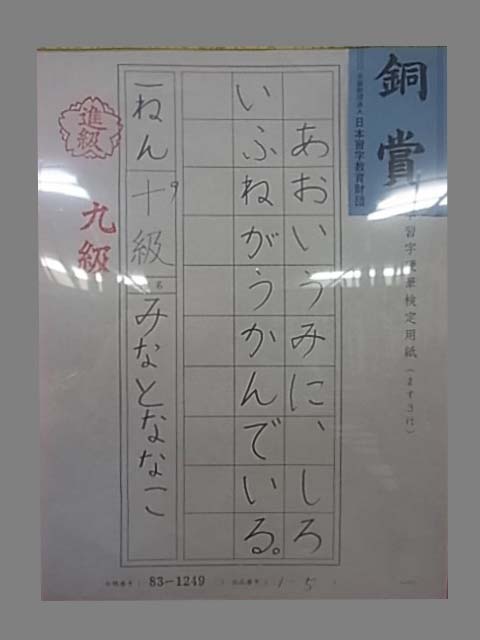 銅賞
日本習字教育財団
習字硬筆検定用紙(ますさげ)
あおいうみに、しろ
いふねがうかんでいる。
一ねん十級
名
みなとななこ
進級
九級
83-1249
1-5